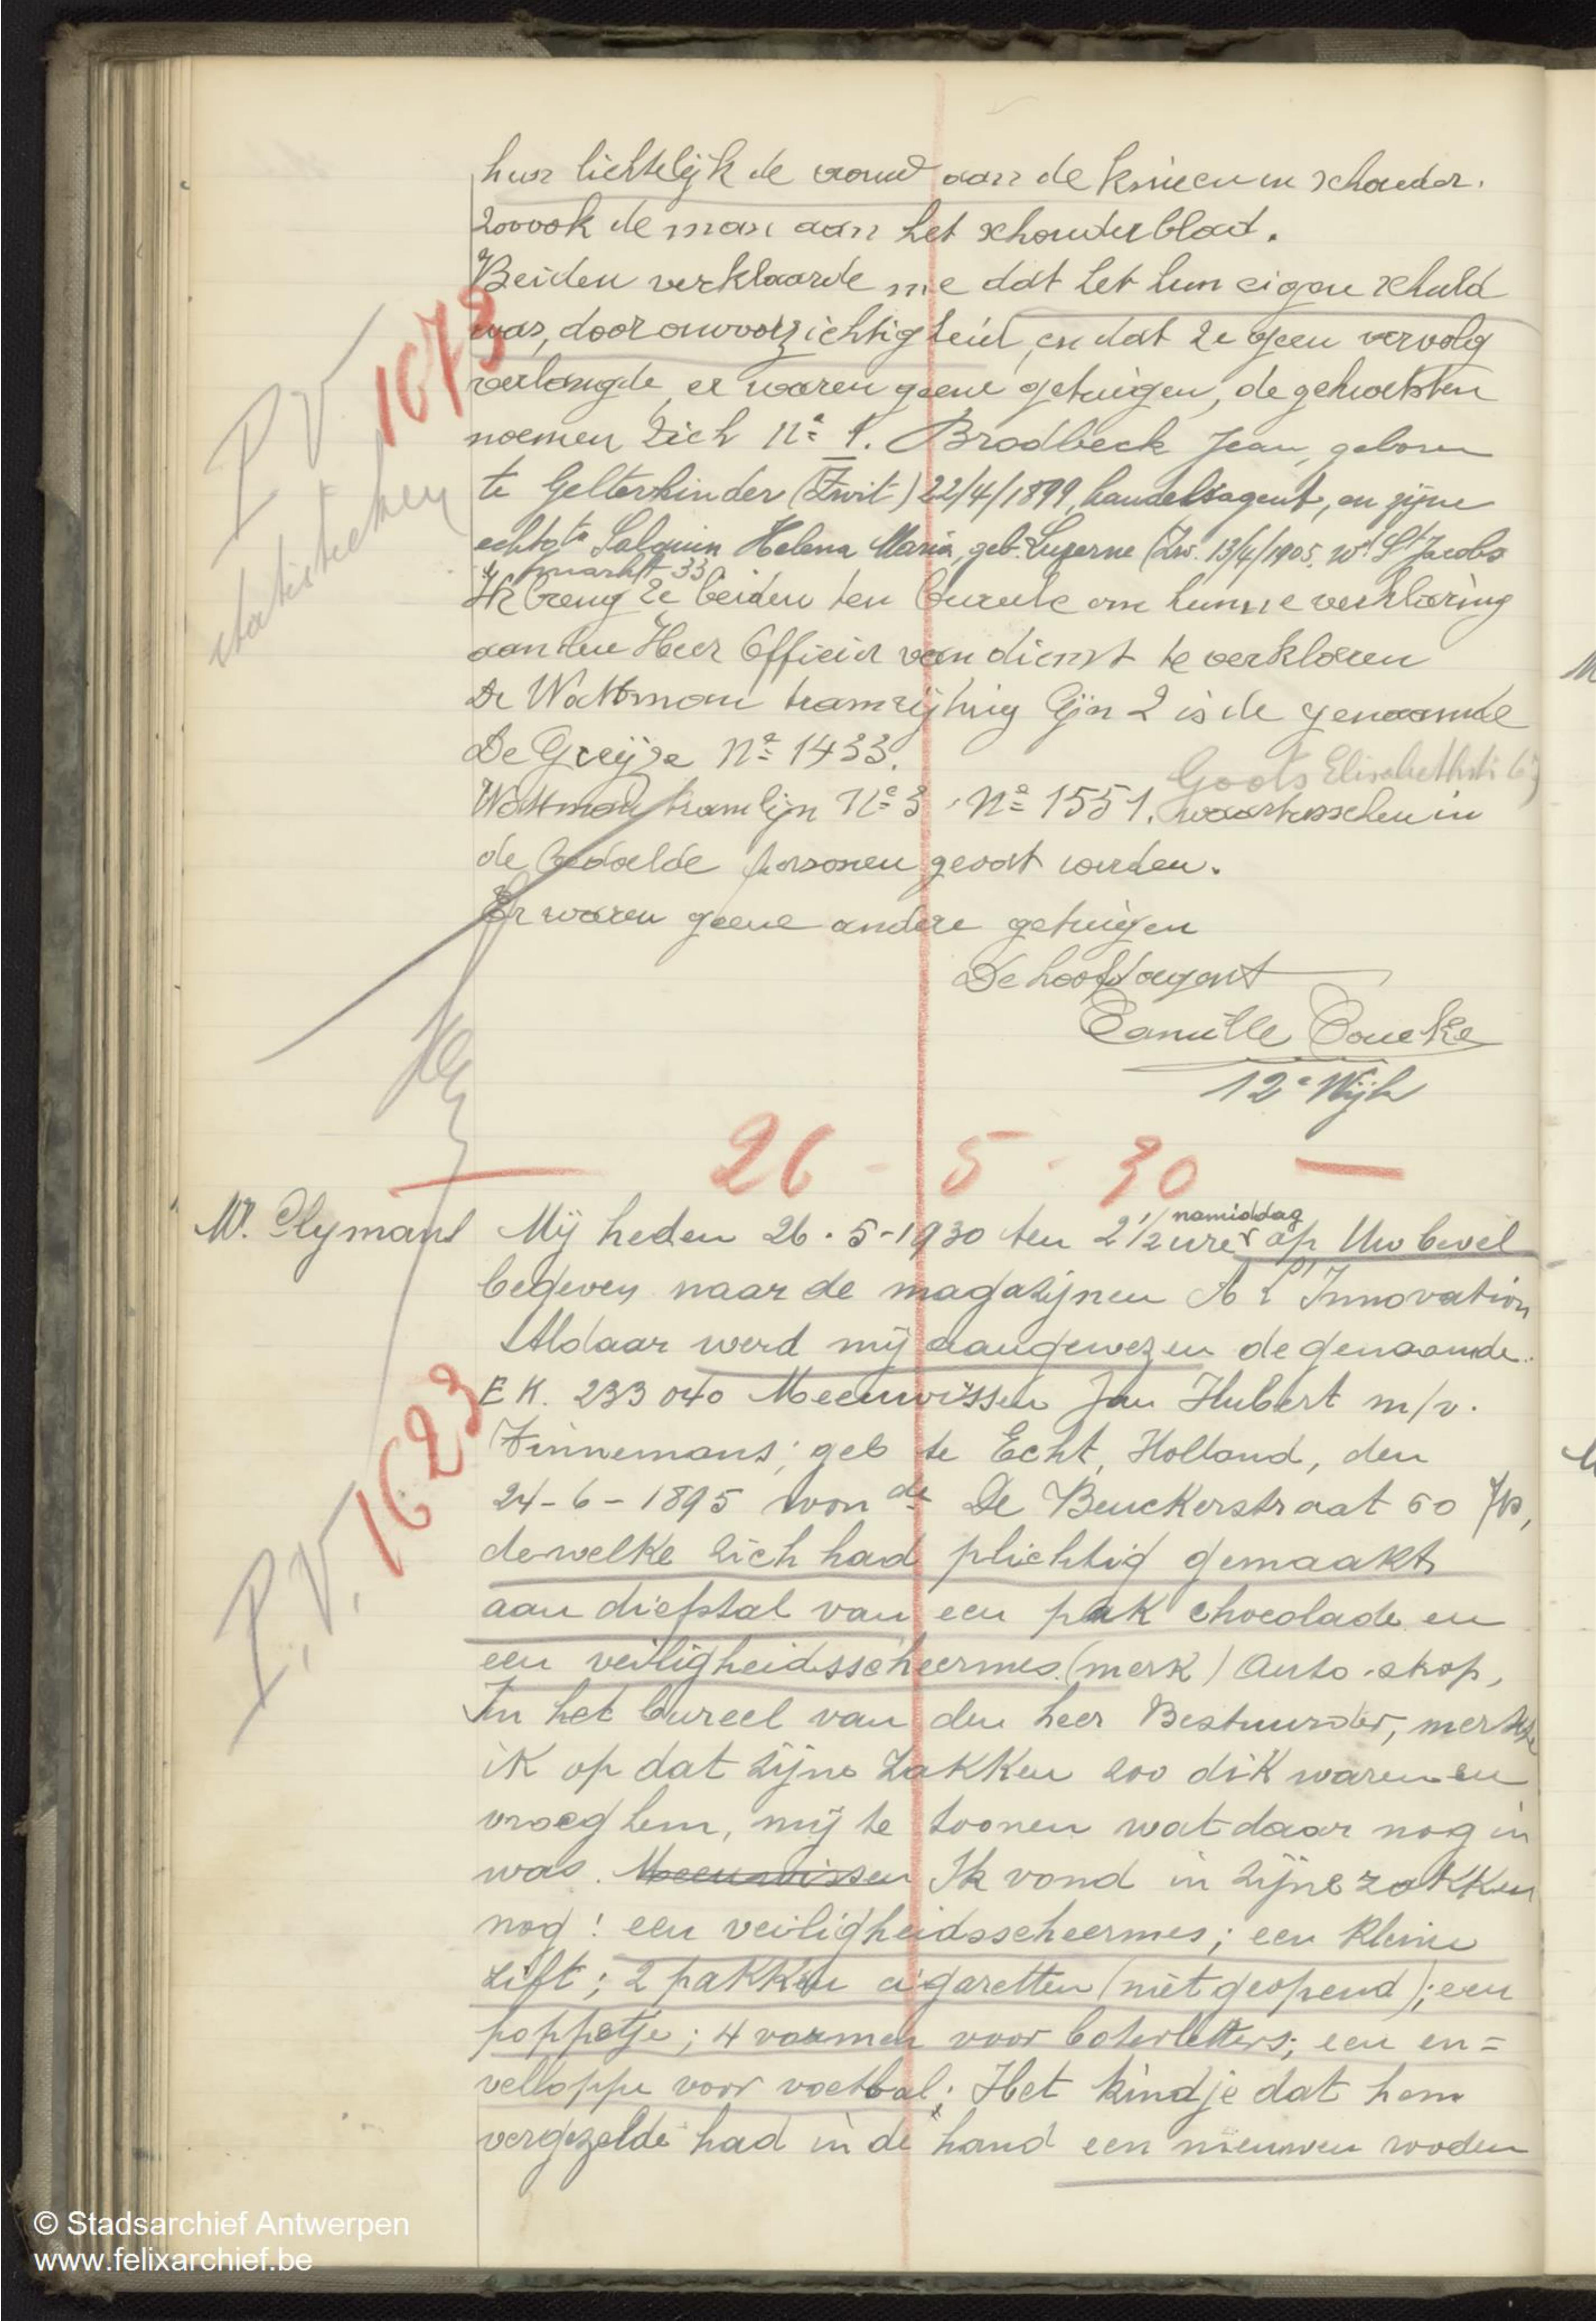 hun lichtelijk de vrouw aan de knieen en schouder.
zooook de man aan het schouderblad.
Beiden verklaarde me dat het hun eigen schuld
was, door onvoorzichtigheid, en dat ze geen vervolg
verlangde, er waren geene getuigen, de gekwetsten
noemen zich No 1. Brodbeck Jean, geboren
te Gelterkinder (Zwit) 22/4/1899, handelsagent, en zijne
echtgte Salquin Helena Maria, geb. Luzerne (Zw. 13/4/1905, wde St Jacobs
markt 33
Ik breng ze beiden ten bureele om hunne verklaring
aan den Heer Officier van dienst te verklaren
De Wattman tramrijtuig lijn 2 is de genaamde
De Greijze No 1433.
Goots Elisabethstr
Wattman tramlijn No 3 No 1551. waartusschen in
de bedoelde personen gevat werden.
Er waren geene andere getuigen
De hoofdagent
Camille Coucke
12e Wijk
P.V. 1673
statistieken
26 - 5 - 30 —
W. Clymans
Mij heden 26-5-1930 ten 2 1/2 ure namiddag op Uw bevel
begeven naar de magazijnen A l'Innovation
Aldaar werd mij aangewezen de genaamde
E K. 233040 Meeuwissen Jan Hubert m/v.
Tinnemans; geb te Echt, Holland, den
24-6-1895 wonde De Beuckerstraat 60
dewelke zich had plichtig gemaakt
aan diefstal van een pak chocolade en
een veiligheidsscheermes (merk) Auto-strop,
In het bureel van den heer Bestuurder, merkte
ik op dat zijne zakken zoo dik waren en
vroeg hem, mij te toonen wat daar nog in
was. Meeuwissen Ik vond in zijne zakken
nog: een veiligheidsscheermes; een kleine
zift; 2 pakken cigaretten (niet geopend); een
poppetje; 4 vormen voor boterletters; een en=
velloppe voor voetbal; Het kindje dat hem
vergezelde had in de hand een nieuwen woden
P.V. 1623
© Stadsarchief Antwerpen
www.felixarchief.be